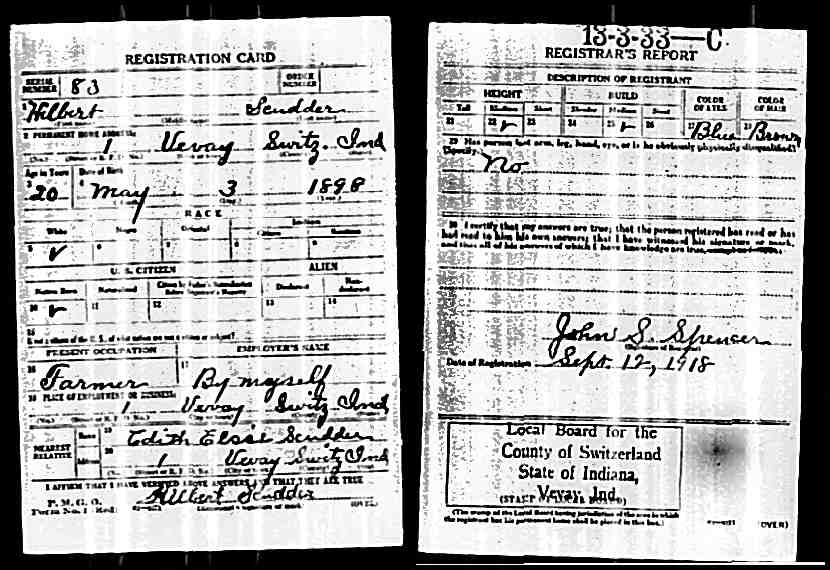 REGISTRATION CARD
SERIAL NUMBER 83 ORDER NUMBER
1 Hilbert Scudder
2 PERMANENT HOME ADDRESS:
1 Vevay Switz. Ind
Age in Years Date of Birth
20 May 3 1898
RACE
White Negro Oriental Indian
Citizen
5 ✓ 6 7 8 9
U. S. CITIZEN ALIEN
Native Born Naturalized Citizen by Father's Naturalization Before Registrant's Majority Declarant Non-declarant
10 ✓ 11 12 13 14
15
If not a citizen of the U. S., of what nation are you a citizen or subject?
PRESENT OCCUPATION EMPLOYER'S NAME
16 Farmer 17 By myself
18 PLACE OF EMPLOYMENT OR BUSINESS:
1 Vevay Switz Ind
NEAREST RELATIVE Name 19 Edith Elsie Scudder
Address 20 1 Vevay Switz Ind
I AFFIRM THAT I HAVE VERIFIED ABOVE ANSWERS AND THAT THEY ARE TRUE
P. M. G. O.
Form No. 1 (Red) Hilbert Scudder
(Registrant's signature or mark) (OVER)
13-3-33—C
REGISTRAR'S REPORT
DESCRIPTION OF REGISTRANT
HEIGHT BUILD COLOR OF EYES COLOR OF HAIR
Tall Medium Short Slender Medium Stout
21 22 ✓ 23 24 25 ✓ 26 27 Blue 28 Brown
29 Has person lost arm, leg, hand, eye, or is he obviously physically disqualified?
(Specify) No
30 I certify that my answers are true; that the person registered has read or has
had read to him his own answers; that I have witnessed his signature or mark,
and that all of his answers of which I have knowledge are true,
John S. Spencer
(Signature of Registrar)
Date of Registration Sept. 12, 1918
Local Board for the
County of Switzerland
State of Indiana,
Vevay, Ind.
(STAMP OF LOCAL BOARD)
(The stamp of the Local Board having jurisdiction of the area in which
the registrant has his permanent home shall be placed in this box.)
(OVER)